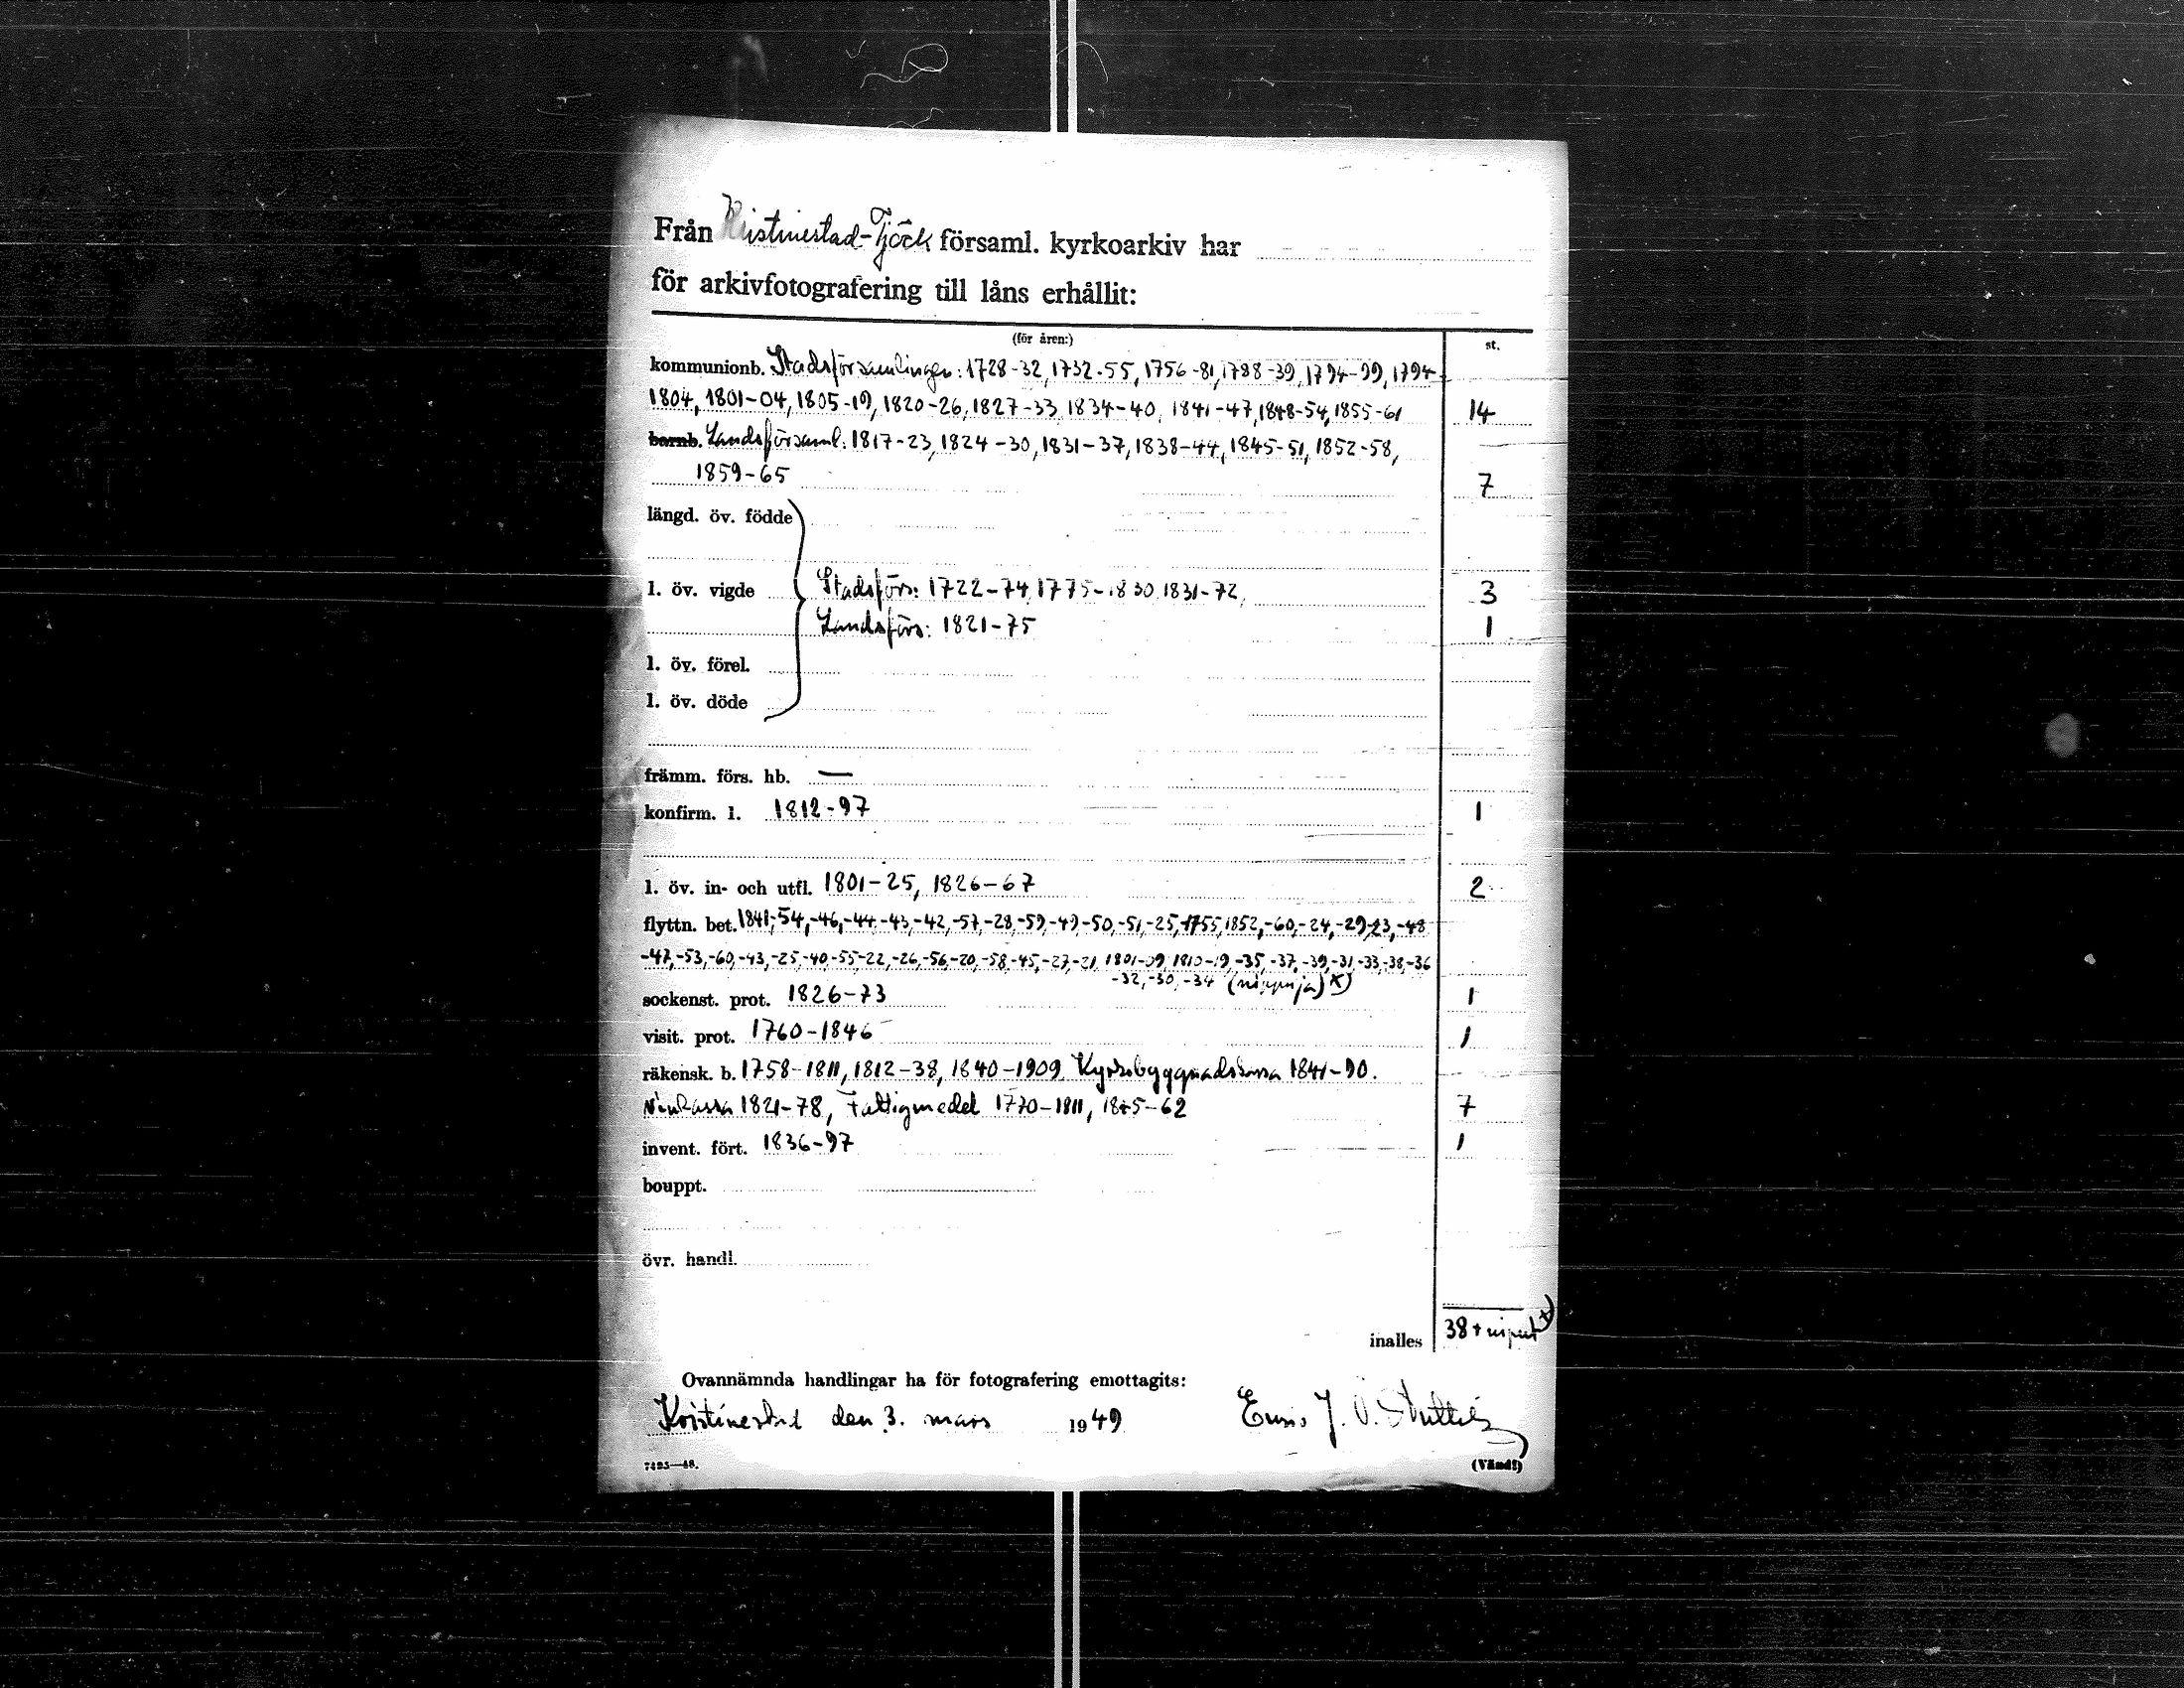 Från Kristinestad-Tjöck församl. kyrkoarkiv har
för arkivfotografering till låns erhållit:
(för åren:) st.
kommunionb. Stadsförsamlingen: 1728-32, 1732-55, 1756-81, 1788-39, 1794-99, 1794-
1804, 1801-04, 1805-19, 1820-26, 1827-33, 1834-40, 1841-47, 1848-54, 1855-61 14
barnb. Landsförsaml: 1817-23, 1824-30, 1831-37, 1838-44, 1845-51, 1852-58,
1859-65 7
längd. öv. födde
l. öv. vigde Stadsförs: 1722-74, 1775-1830, 1831-72, 3
Landsförs: 1821-75 1
l. öv. förel.
l. öv. döde
främm. förs. hb. —
konfirm. l. 1812-97 1
l. öv. in- och utfl. 1801-25, 1826-67 2
flyttn. bet. 1841,-54,-46,-44,-43,-42,-57,-28,-59,-49,-50,-51,-25, 1755, 1852,-60,-24,-29,-23,-48
-47,-53,-60,-43,-25,-40,-55,-22,-26,-56,-20,-58,-45,-27,-21, 1801-09, 1810-19,-35,-37,-39,-31,-33,-38,-36
-32,-30,-34 (nippuja) x)
sockenst. prot. 1826-73 1
visit. prot. 1760-1846 1
räkensk. b. 1758-1811, 1812-38, 1840-1909, Kyrkobyggnadskassa 1841-90.
1821-78, Fattigmedel 1770-1811, 1845-62 7
invent. fört. 1836-97 1
bouppt.
övr. handl.
inalles 38 + niput x)
Ovannämnda handlingar ha för fotografering emottagits:
Kristinestad den 3. mars 1949 J. O.
7493—48. (Vänd!)